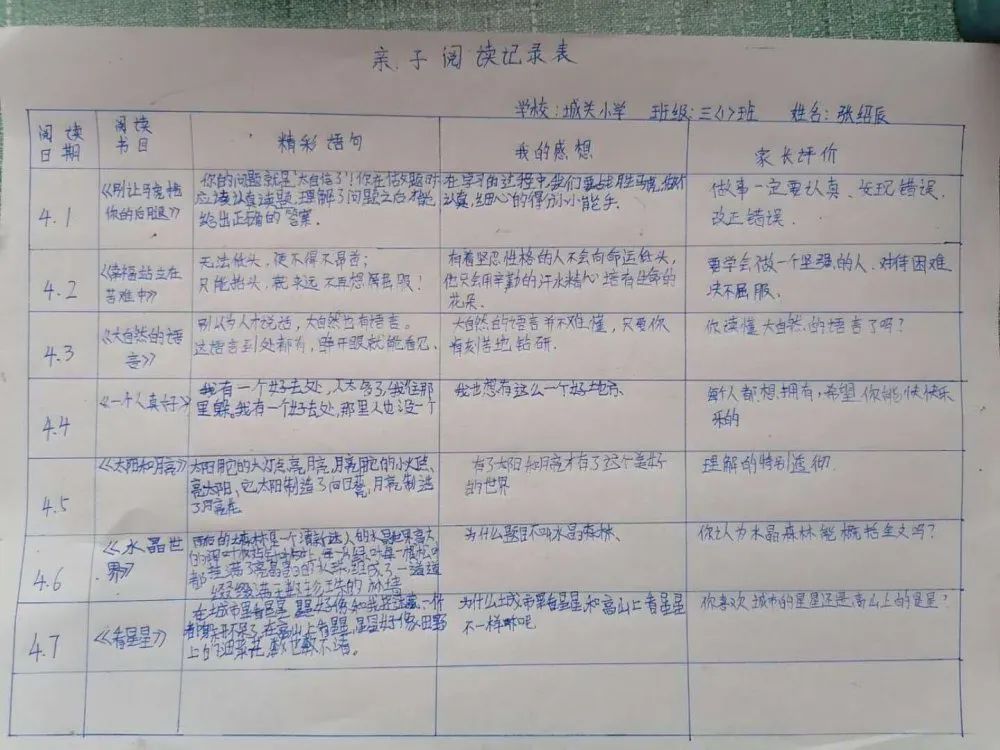 亲子阅读记录表
学校:城关小学 班级:三(1)班 姓名:张绍辰
阅读日期
阅读书目
精彩语句
我的感想
家长评价
4.1
《别让马虎拖
你的后腿》
你的问题就是"太自信了"!你在做题时
应该认真读题,理解了问题之后才能
给出正确的答案.
在学习的过程中,我们要战胜马虎,做个
认真,细心的得分小能手.
做事一定要认真、发现错误,
改正错误.
4.2
《幸福站立在
苦难中》
无法低头,便不得不昂首;
只能抬头,就永远不再想屈服!
有着坚忍性格的人不会向命运低头,
他只会用辛勤的汗水精心培育生命的
花朵.
要学会做一个坚强的人.对待困难
决不屈服.
4.3
《大自然的语
言》
别以为人才说话,大自然也有语言。
这语言到处都有,睁开眼就能看见.
大自然的语言并不难懂,只要你
有刻苦地钻研.
你读懂大自然的语言了吗?
4.4
《一个人真好》
我有一个好去处,人太多了,我往那
里躲。我有一个好去处,那里人也没一个
我也想有这么一个好地方
每个人都想拥有,希望你能快快乐
乐的
4.5
《太阳和月亮》
太阳用它的大灯点亮月亮,月亮用它的小火
亮太阳,太阳制造了向日葵,月亮制造
了月亮花
有了太阳和月亮才有了这个美好
的世界
理解的特别透彻.
4.6
《水晶世
界》
雨后的森林是一个清新迷人的水晶世界
都
缀满
为什么题目不叫水晶森林、
你认为水晶森林能概括全文吗?
4.7
《看星星》
在城市里看星星,星星好像
在高山上看星星,星星好像田野
上的野菜花,数也数不清。
为什么城市里看星星和高山上看星星
不一样呢
你喜欢城市的星星还是高山上的星星?